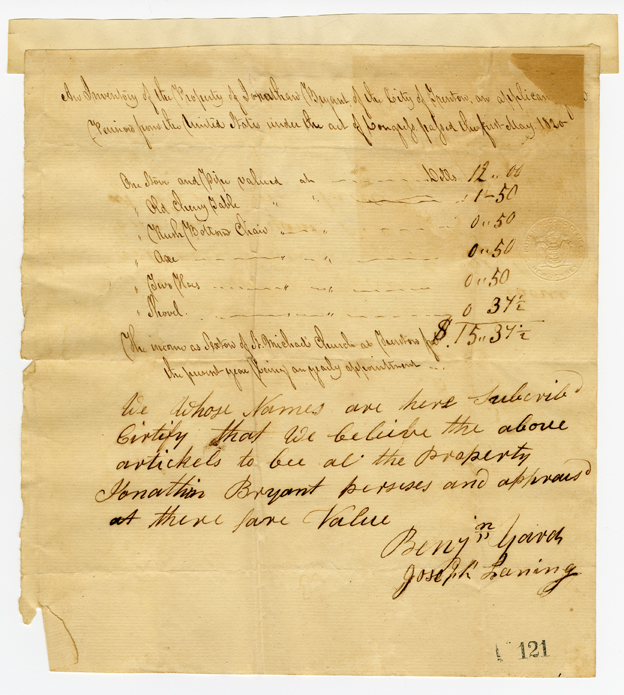 An Inventory of the Property of Jonathan Bryant of the City of Trenton, an applicant
Pension from the United States under the act of Congress passed the first May 1820
One Stove and Pipe valued at Dolls 12 " 00
" Old Cherry Table " " 1-50
" Rush Bottom Chair " 0 " 50
" Axe " " 0 " 50
" Two Hoes " " 0 " 50
" Shovel " " 0 37½
$ 15 " 37½
The income as Sexton of St. Michaels Church at Trenton for
the present year (being an yearly appointment
We Whose Names are here Subcribd
Certify that We beleive the above
artickels to bee al the Property
Jonathin Bryant perseses and appraisd
at there fare Value
Benjn Yard
Joseph Laning
121